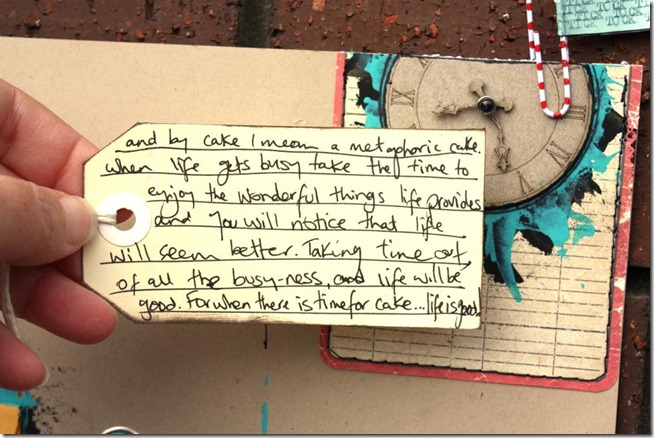 TICK TOCK
and by cake I mean a metaphoric cake.
When life gets busy take the time to
enjoy the wonderful things life provides
and you will notice that life
will seem better. Taking time out
of all the busy-ness, and life will be
good. For when there is time for cake...life is good.